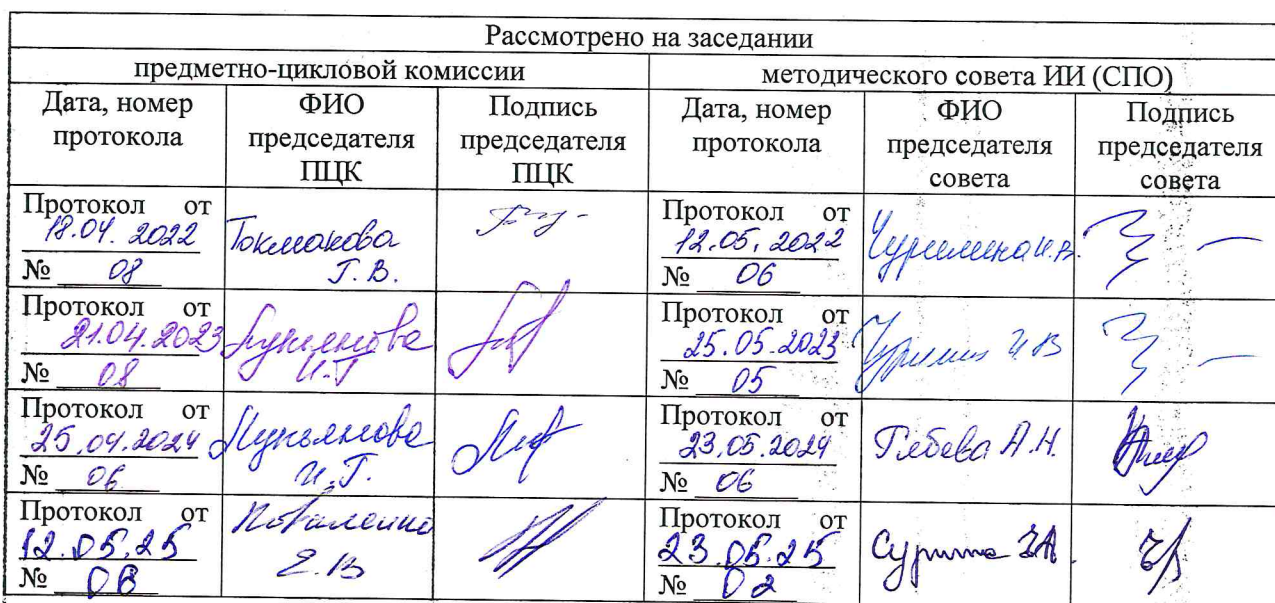 Рассмотрено на заседании
предметно-цикловой комиссии методического совета ИИ (СПО)
Дата, номер протокола ФИО председателя ПЦК Подпись председателя ПЦК Дата, номер протокола ФИО председателя совета Подпись председателя совета
Протокол от
18.04. 2022
№ 08
Токмакова
Г.В.
Протокол от
12.05. 2022
№ 06
Чурилина И.В.
Протокол от
21.04.2023
№ 08
Лукьянова
И.Г
Протокол от
25.05.2023
№ 05
И.В
Протокол от
25.04.2024
№ 06
Лукьянова
И.Г.
Протокол от
23.05.2024
№ 06
А.Н.
Протокол от
12.05.25
№
Коваленко
Е.В
Протокол от
23.05.25
№ 02